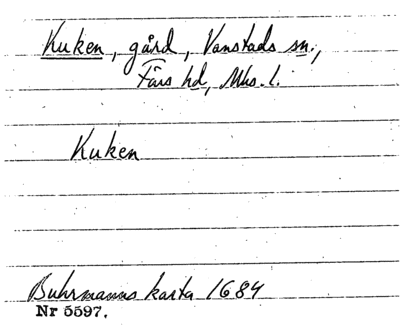 Kuken, gård, Vanstads sn.,
Färs hd, Mhs. l.
Kuken
Buhrmanns karta 1684
Nr 5597.